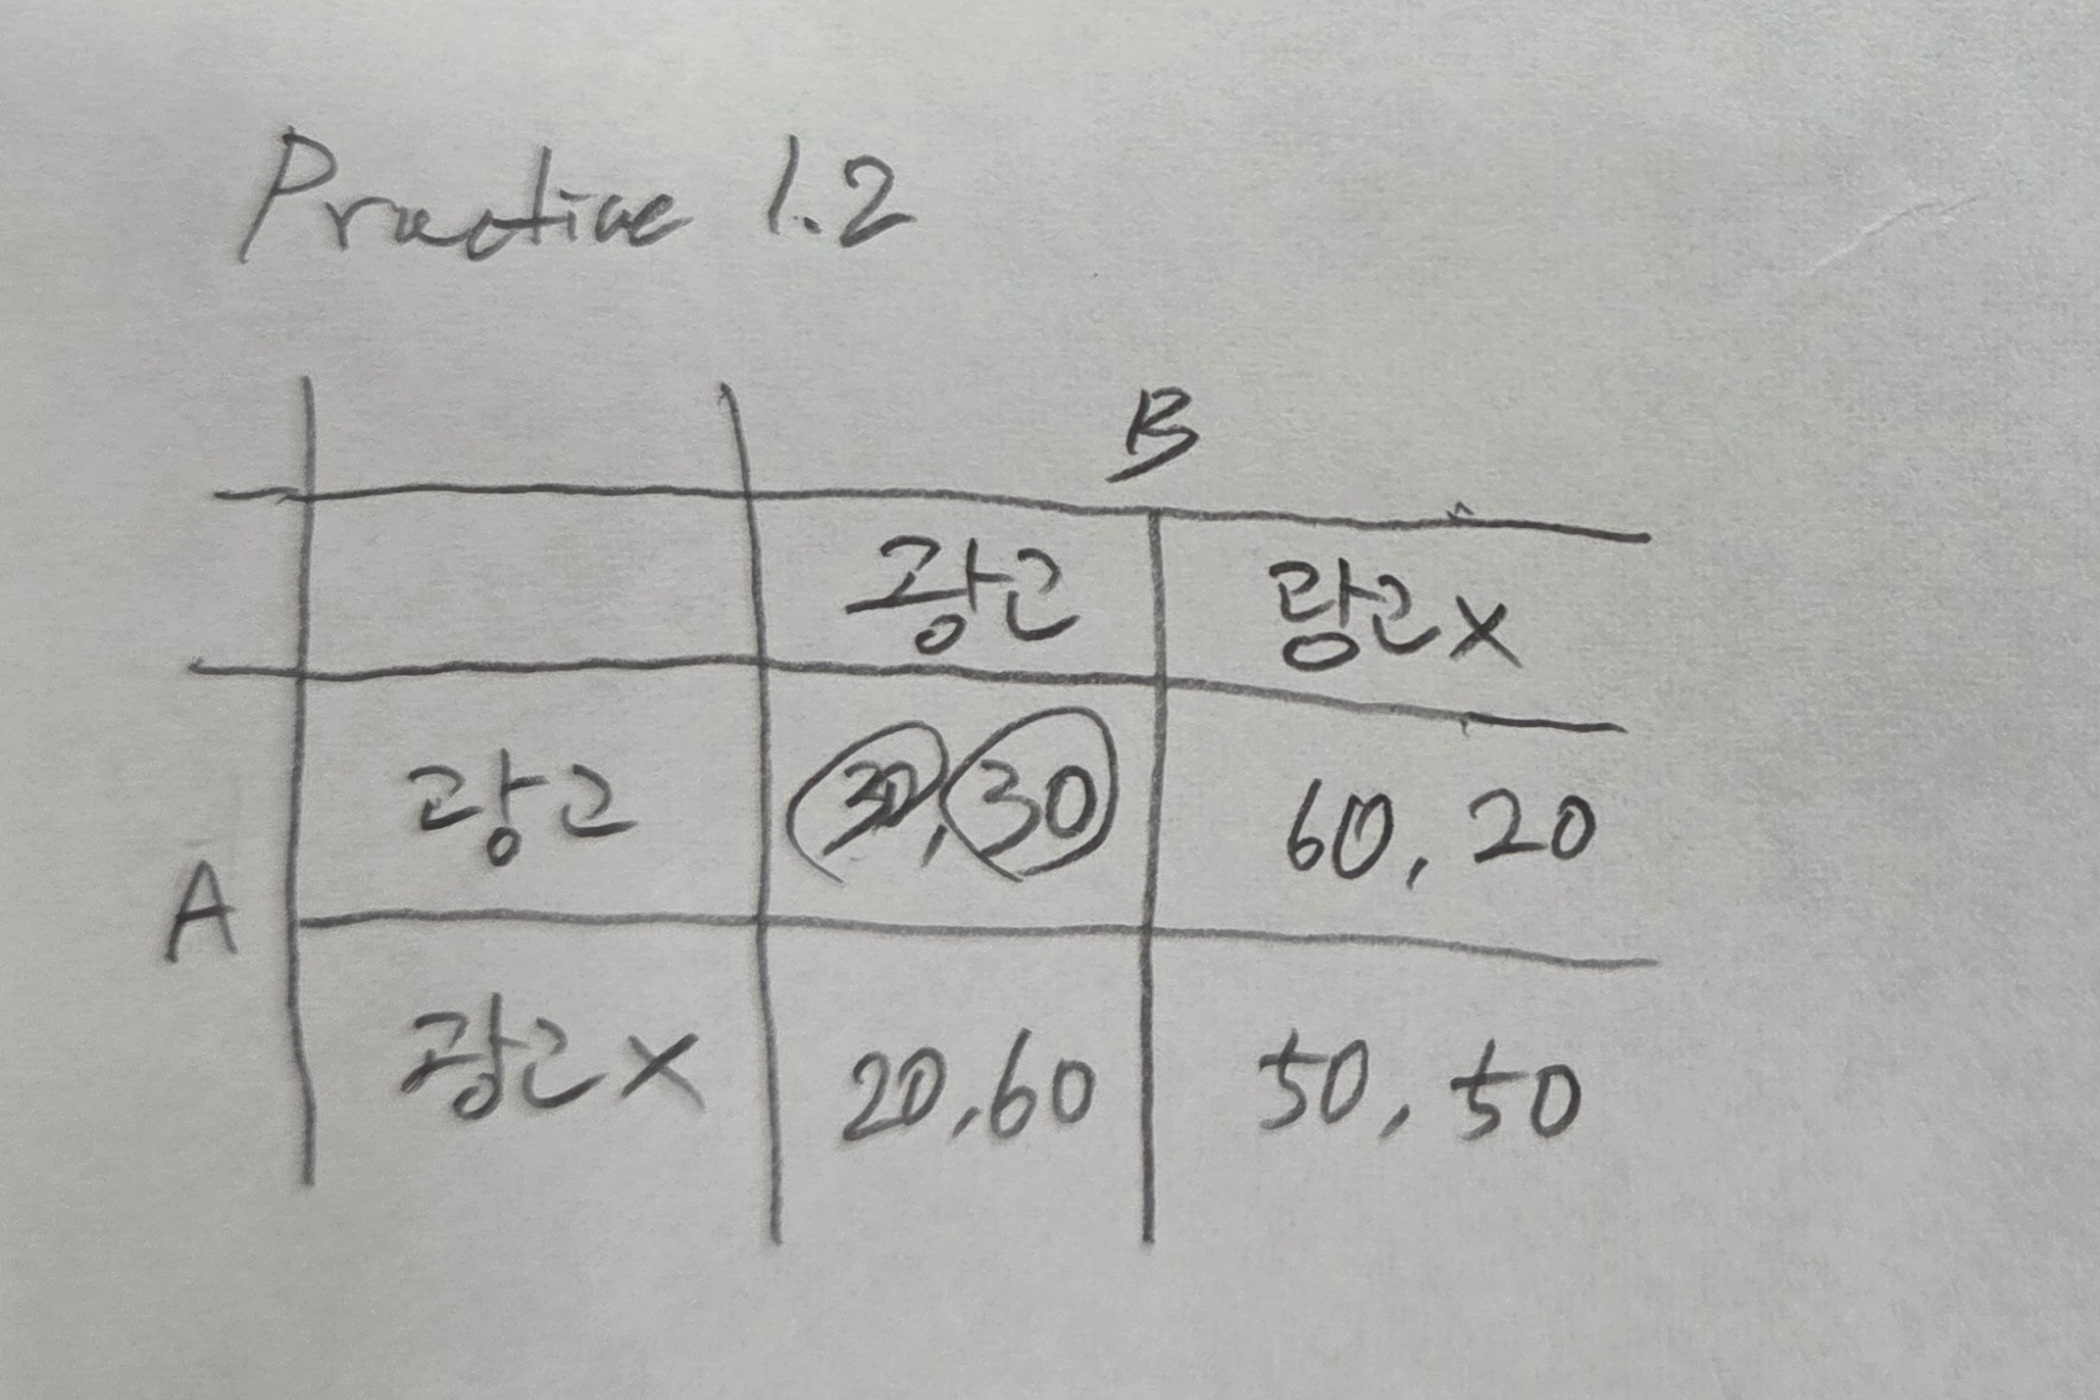 Practice 1.2
B
광고 광고X
광고 30, 30 60, 20
A
광고X 20, 60 50, 50